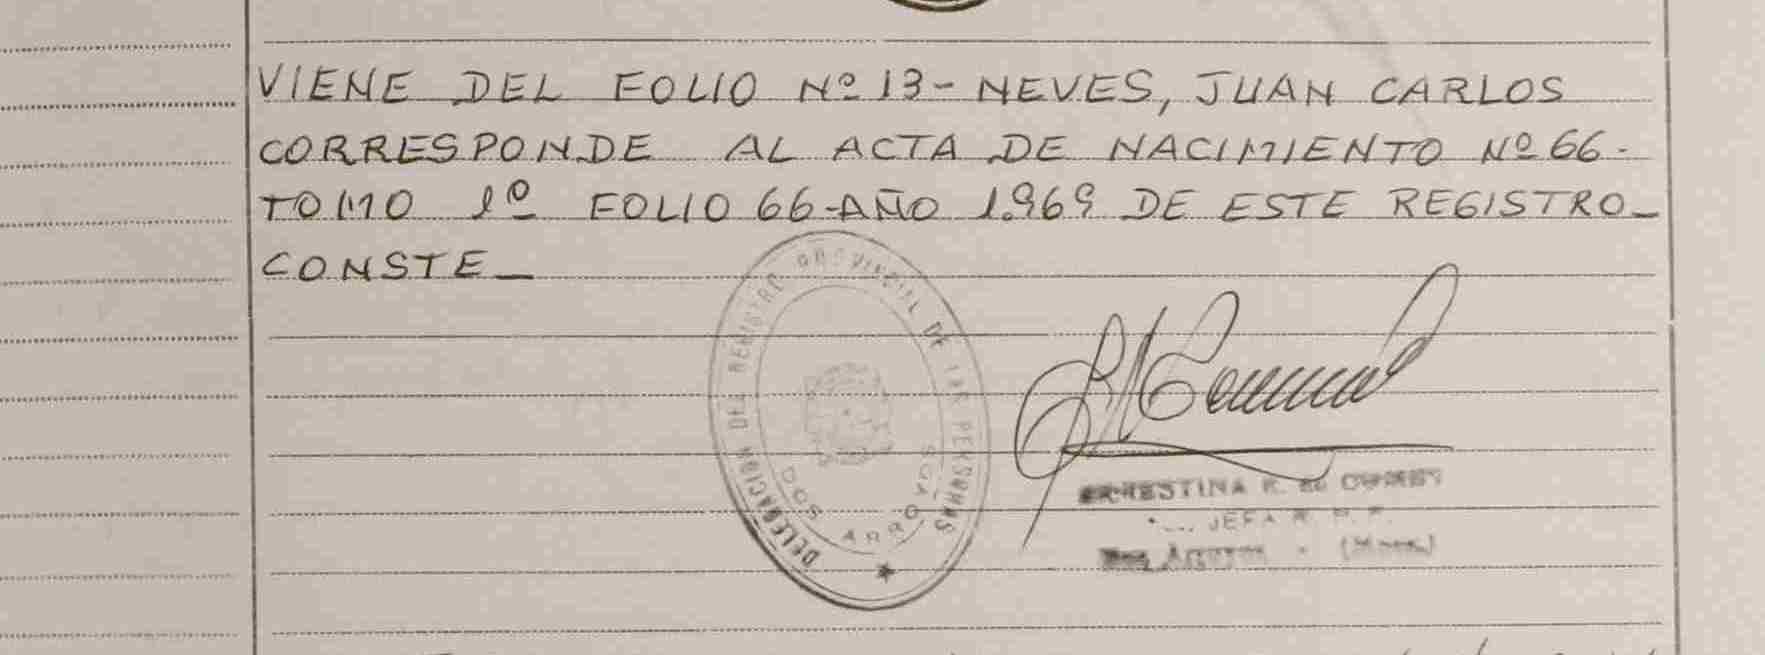 VIENE DEL FOLIO Nº 13 - NEVES, JUAN CARLOS
CORRESPONDE AL ACTA DE NACIMIENTO Nº 66-
TOMO 1º FOLIO 66-AÑO 1.969 DE ESTE REGISTRO-
CONSTE-
DELEGACION DEL REGISTRO PROVINCIAL DE LAS PERSONAS
DOS ARROYOS
ERNESTINA
JEFA R. P. P.
Dos Arroyos - (Mnes.)